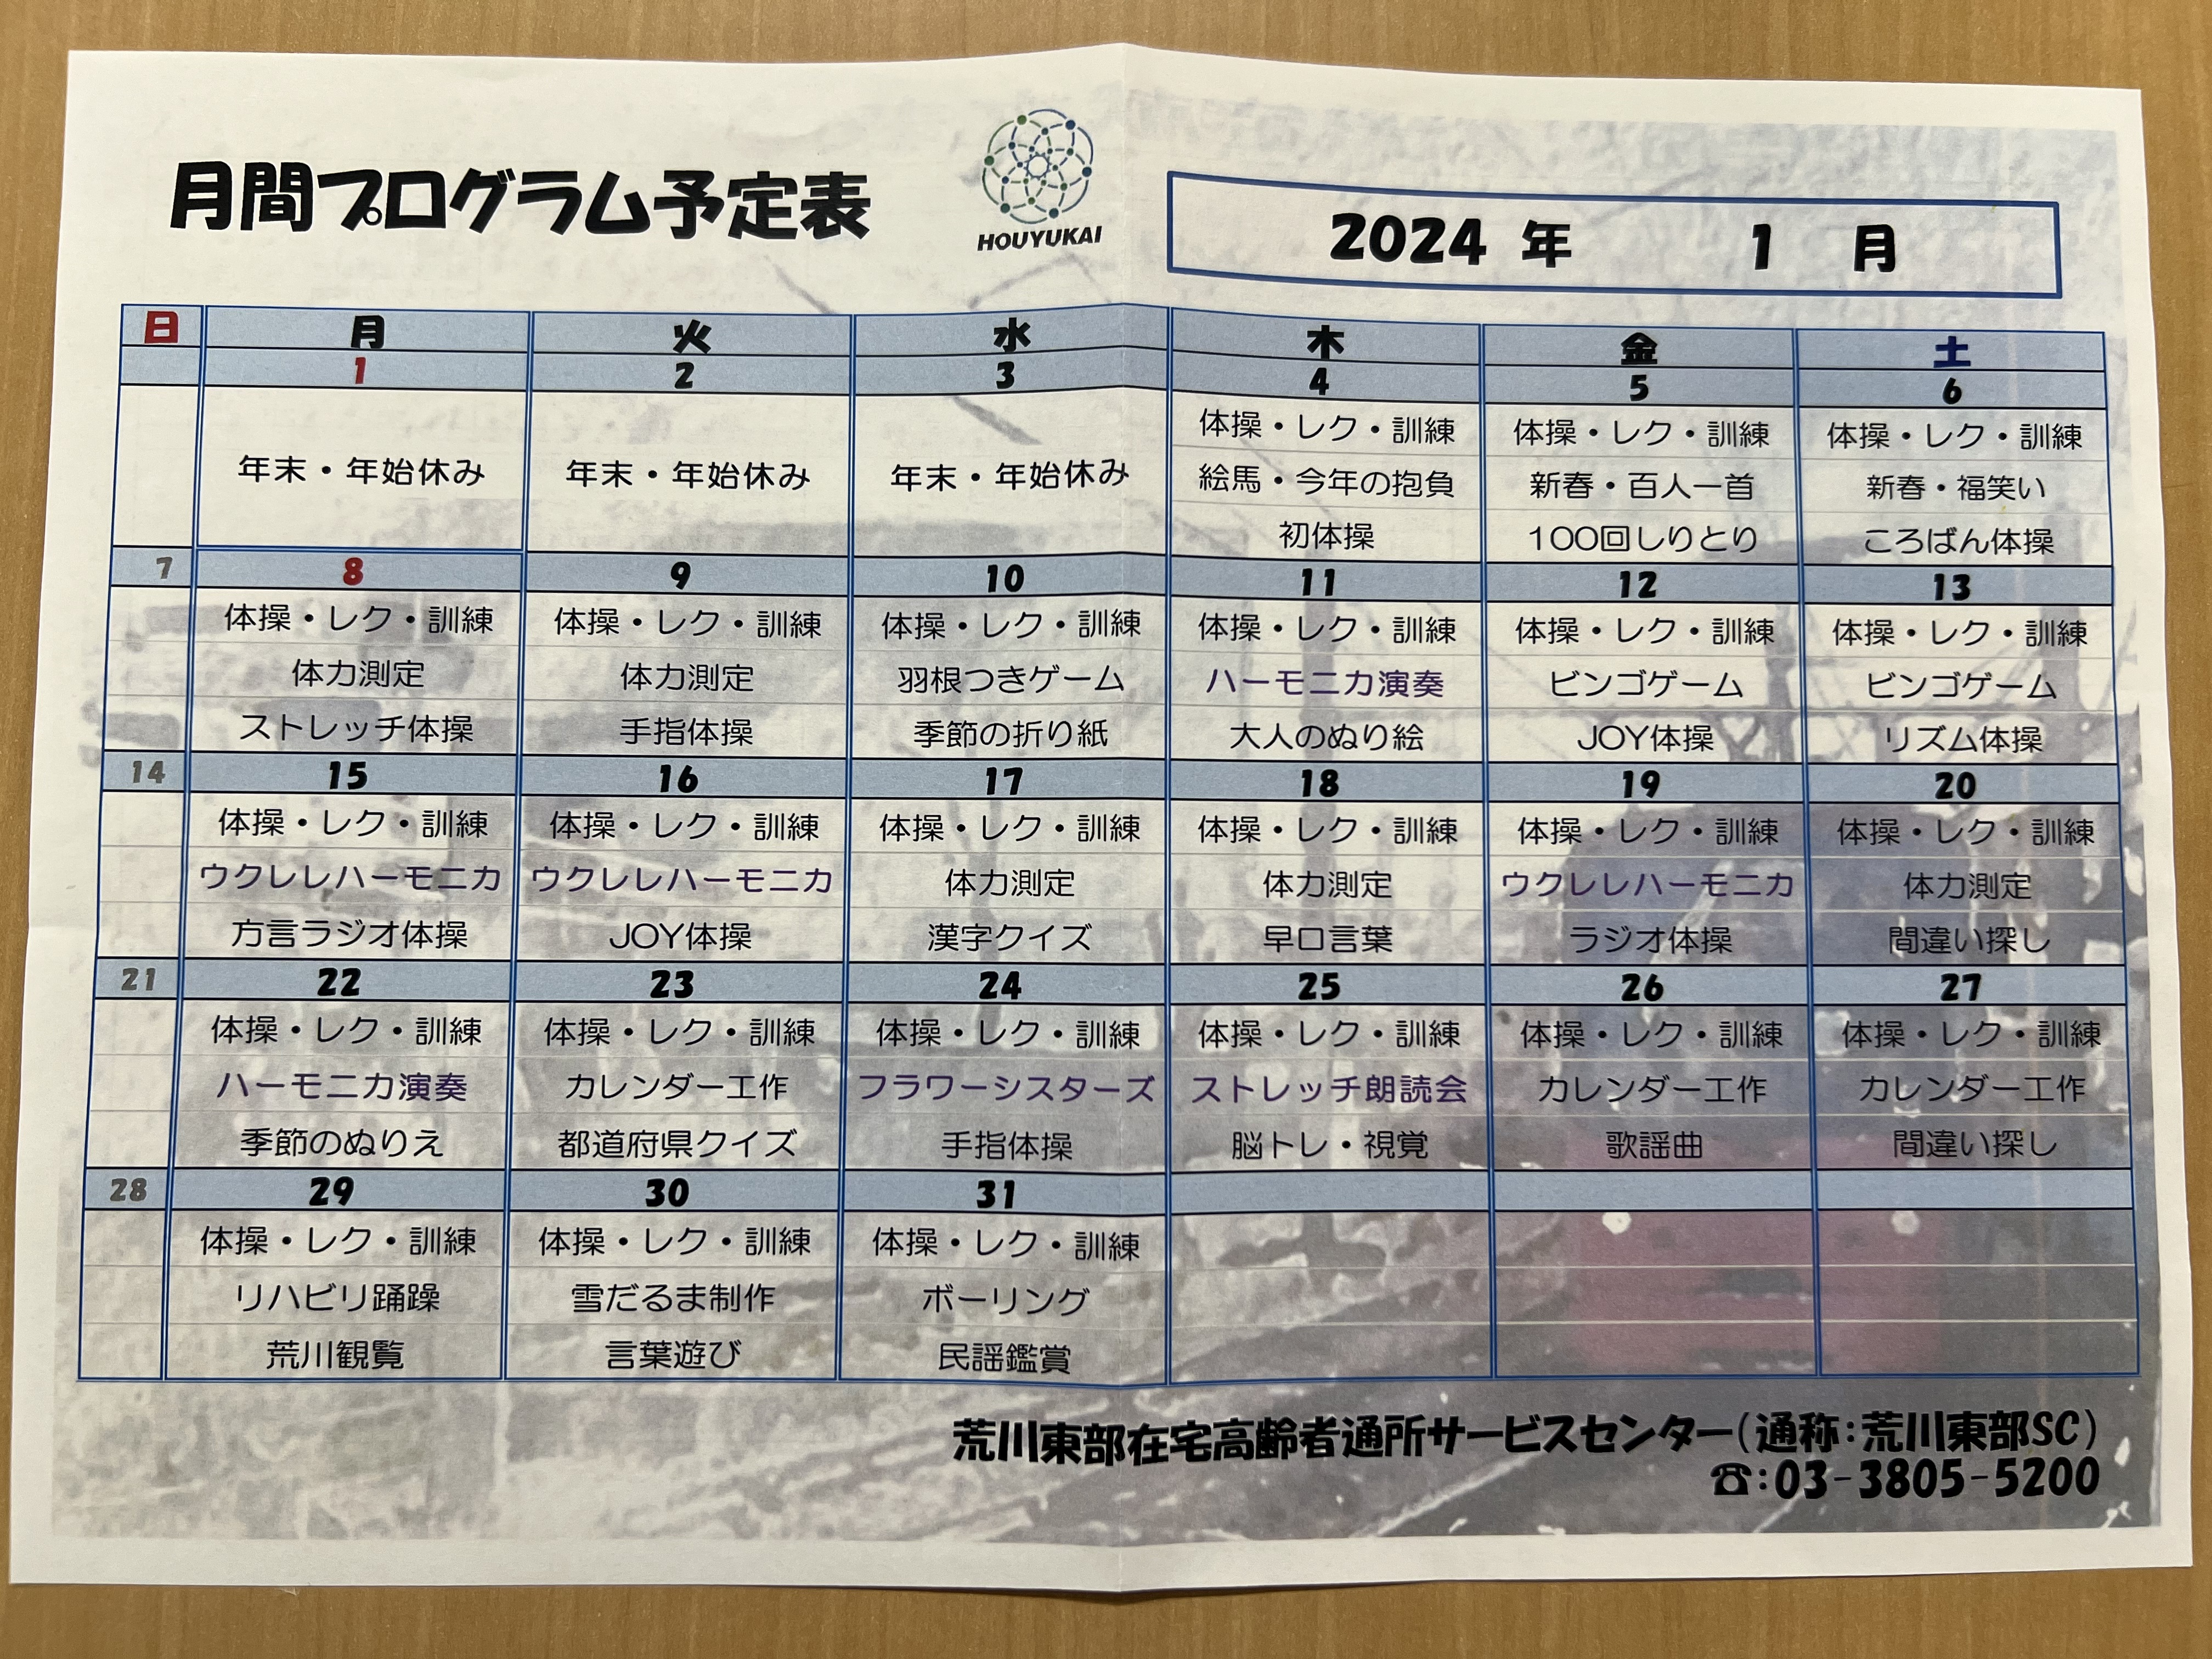 月間プログラム予定表
HOUYUKAI
2024 年 1 月
日 月 火 水 木 金 土
1 2 3 4 5 6
年末・年始休み 年末・年始休み 年末・年始休み 体操・レク・訓練 体操・レク・訓練 体操・レク・訓練
絵馬・今年の抱負 新春・百人一首 新春・福笑い
初体操 100回しりとり ころばん体操
7 8 9 10 11 12 13
体操・レク・訓練 体操・レク・訓練 体操・レク・訓練 体操・レク・訓練 体操・レク・訓練 体操・レク・訓練
体力測定 体力測定 羽根つきゲーム ハーモニカ演奏 ビンゴゲーム ビンゴゲーム
ストレッチ体操 手指体操 季節の折り紙 大人のぬり絵 JOY体操 リズム体操
14 15 16 17 18 19 20
体操・レク・訓練 体操・レク・訓練 体操・レク・訓練 体操・レク・訓練 体操・レク・訓練 体操・レク・訓練
ウクレレハーモニカ ウクレレハーモニカ 体力測定 体力測定 ウクレレハーモニカ 体力測定
方言ラジオ体操 JOY体操 漢字クイズ 早口言葉 ラジオ体操 間違い探し
21 22 23 24 25 26 27
体操・レク・訓練 体操・レク・訓練 体操・レク・訓練 体操・レク・訓練 体操・レク・訓練 体操・レク・訓練
ハーモニカ演奏 カレンダー工作 フラワーシスターズ ストレッチ朗読会 カレンダー工作 カレンダー工作
季節のぬりえ 都道府県クイズ 手指体操 脳トレ・視覚 歌謡曲 間違い探し
28 29 30 31
体操・レク・訓練 体操・レク・訓練 体操・レク・訓練
リハビリ踊躁 雪だるま制作 ボーリング
荒川観覧 言葉遊び 民謡鑑賞
荒川東部在宅高齢者通所サービスセンター(通称:荒川東部SC)
☎:03-3805-5200